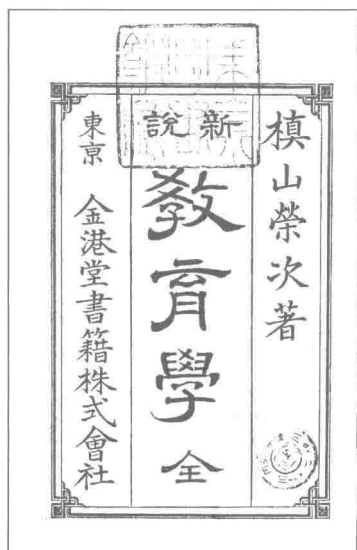 槙山榮次著
新說
教育學 全
東京 金港堂書籍株式會社